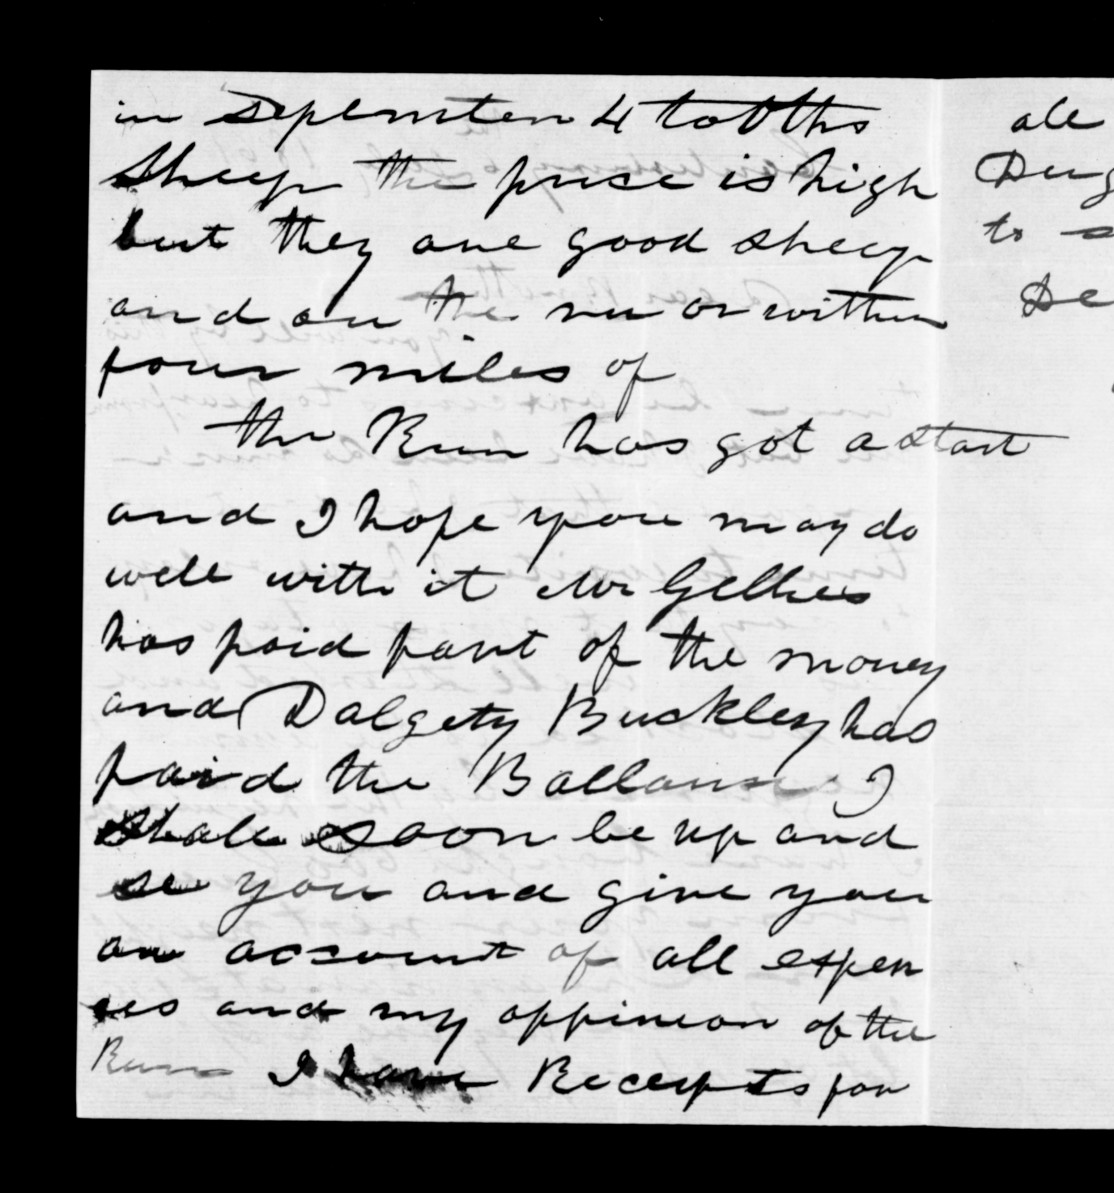 in September 4 tooths
sheep the price is high
but they are good sheep
and are the run or within
four miles of
the Run has got a start
and I hope you may do
well with it Mr Gellies
has paid part of the money
and Dalgety Buckley has
paid the Ballanse I
shall soon be up and
se you and give you
an account of all expen
ses and my oppinion of the
Run I have Receipts for
all
to